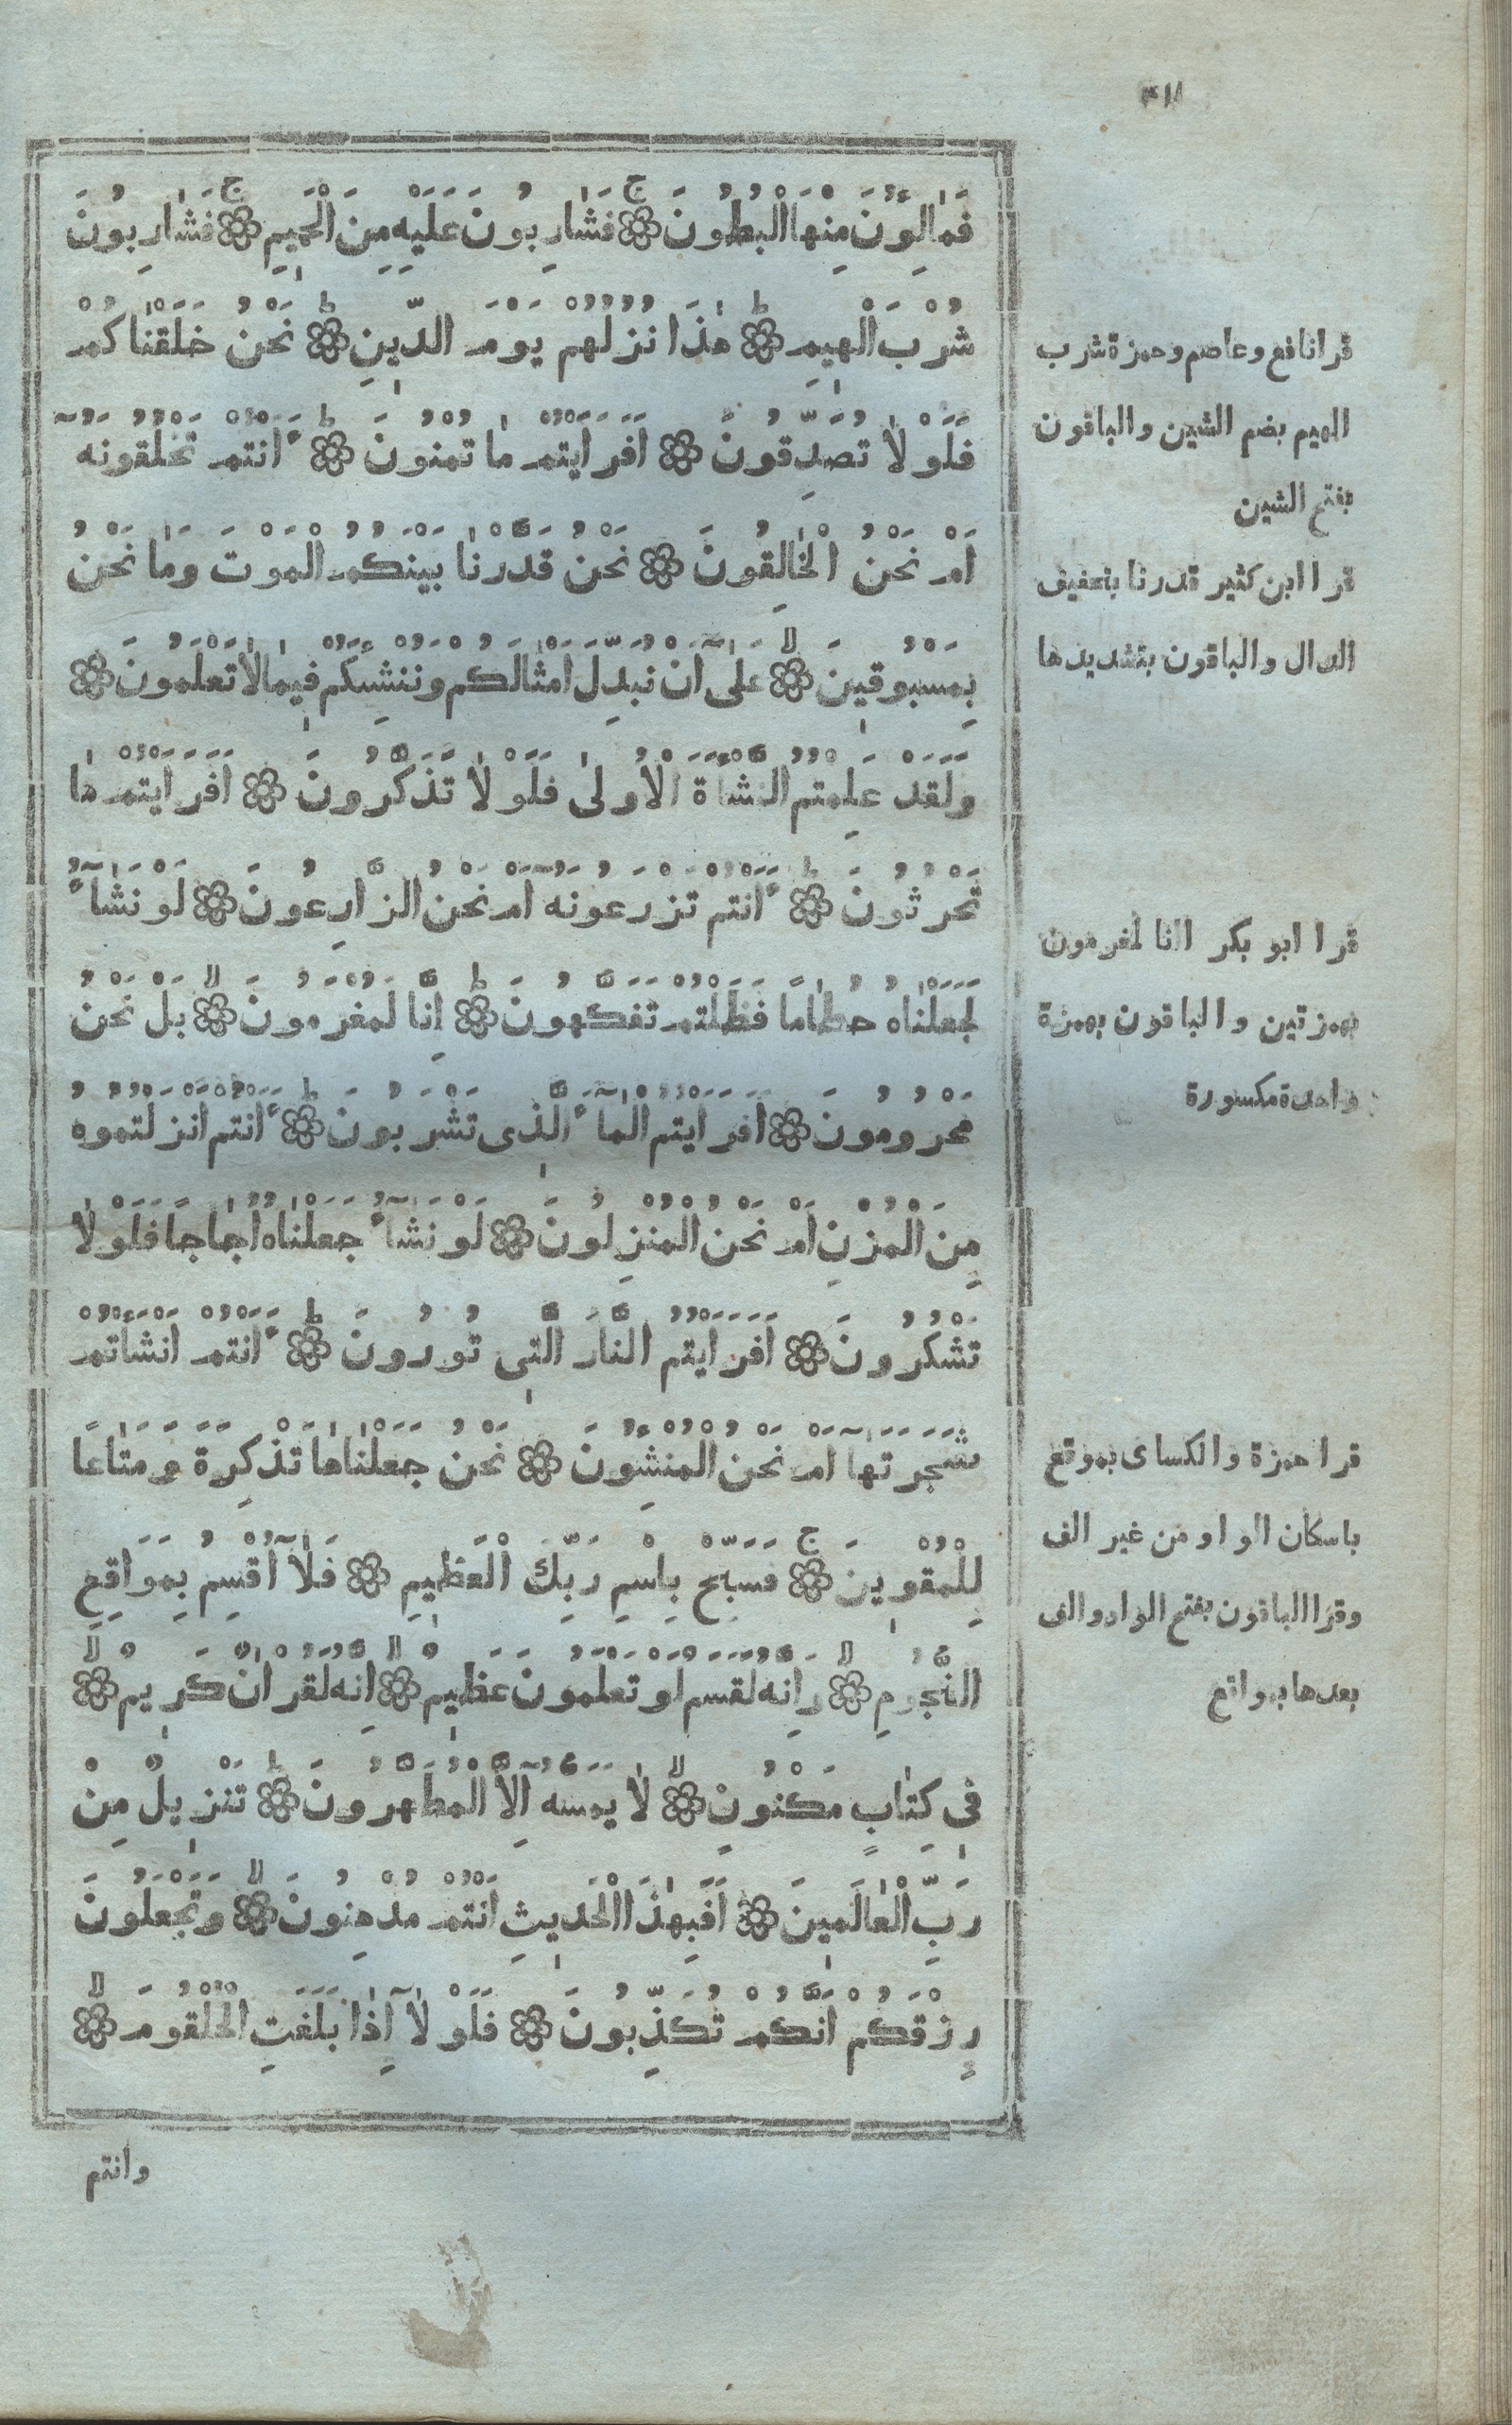 ۴۱۸
فَمَالِؤُنَ مِنْهَا الْبُطُونَ ۞ ج فَشَارِبُونَ عَلَيْهِ مِنَ الْحَمِيمِ ۞ ج فَشَارِبُونَ
شُرْبَ الْهِيمِ ۞ ط هٰذَا نُزُلُهُمْ يَوْمَ الدِّينِ ۞ ط نَحْنُ خَلَقْنَاكُمْ
فَلَوْلَا تُصَدِّقُونَ ۞ اَفَرَاَيْتُمْ مَا تُمْنُونَ ۞ ط ءَاَنْتُمْ تَخْلُقُونَهُٓ
اَمْ نَحْنُ الْخَالِقُونَ ۞ نَحْنُ قَدَّرْنَا بَيْنَكُمُ الْمَوْتَ وَمَا نَحْنُ
بِمَسْبُوقِينَ ۞ لا عَلٰٓى اَنْ نُبَدِّلَ اَمْثَالَكُمْ وَنُنْشِئَكُمْ فِيمَا لَا تَعْلَمُونَ ۞
وَلَقَدْ عَلِمْتُمُ النَّشْاَةَ الْاُولٰى فَلَوْلَا تَذَكَّرُونَ ۞ اَفَرَاَيْتُمْ مَا
تَحْرُثُونَ ۞ ط ءَاَنْتُمْ تَزْرَعُونَهُٓ اَمْ نَحْنُ الزَّارِعُونَ ۞ لَوْ نَشَآءُ
لَجَعَلْنَاهُ حُطَامًا فَظَلْتُمْ تَفَكَّهُونَ ۞ ط اِنَّا لَمُغْرَمُونَ ۞ لا بَلْ نَحْنُ
مَحْرُومُونَ ۞ اَفَرَاَيْتُمُ الْمَآءَ الَّذِى تَشْرَبُونَ ۞ ط ءَاَنْتُمْ اَنْزَلْتُمُوهُ
مِنَ الْمُزْنِ اَمْ نَحْنُ الْمُنْزِلُونَ ۞ لَوْ نَشَآءُ جَعَلْنَاهُ اُجَاجًا فَلَوْلَا
تَشْكُرُونَ ۞ اَفَرَاَيْتُمُ النَّارَ الَّتِى تُورُونَ ۞ ط ءَاَنْتُمْ اَنْشَاْتُمْ
شَجَرَتَهَآ اَمْ نَحْنُ الْمُنْشِؤُنَ ۞ نَحْنُ جَعَلْنَاهَا تَذْكِرَةً وَمَتَاعًا
لِلْمُقْوِينَ ۞ ج فَسَبِّحْ بِاسْمِ رَبِّكَ الْعَظِيمِ ۞ فَلَآ اُقْسِمُ بِمَوَاقِعِ
النُّجُومِ ۞ لا وَاِنَّهُ لَقَسَمٌ لَوْ تَعْلَمُونَ عَظِيمٌ ۞ لا اِنَّهُ لَقُرْاٰنٌ كَرِيمٌ ۞ لا
فِى كِتَابٍ مَكْنُونٍ ۞ لا لَا يَمَسُّهُٓ اِلَّا الْمُطَهَّرُونَ ۞ ط تَنْزِيلٌ مِنْ
رَبِّ الْعَالَمِينَ ۞ اَفَبِهٰذَا الْحَدِيثِ اَنْتُمْ مُدْهِنُونَ ۞ لا وَتَجْعَلُونَ
رِزْقَكُمْ اَنَّكُمْ تُكَذِّبُونَ ۞ فَلَوْلَآ اِذَا بَلَغَتِ الْحُلْقُومَ ۞ لا
وانتم
قرا نافع وعاصم وحمزة شرب
الهيم بضم الشين والباقون
بفتح الشين
قرا ابن كثير قدرنا بتخفيف
الدال والباقون بتشديدها
قرا ابو بكر اانا لمغرمون
بهمزتين والباقون بهمزة
واحدة مكسورة
قرا حمزة والكساى بموقع
باسكان الواو من غير الف
وقرا الباقون بفتح الواو والف
بعدها بمواقع